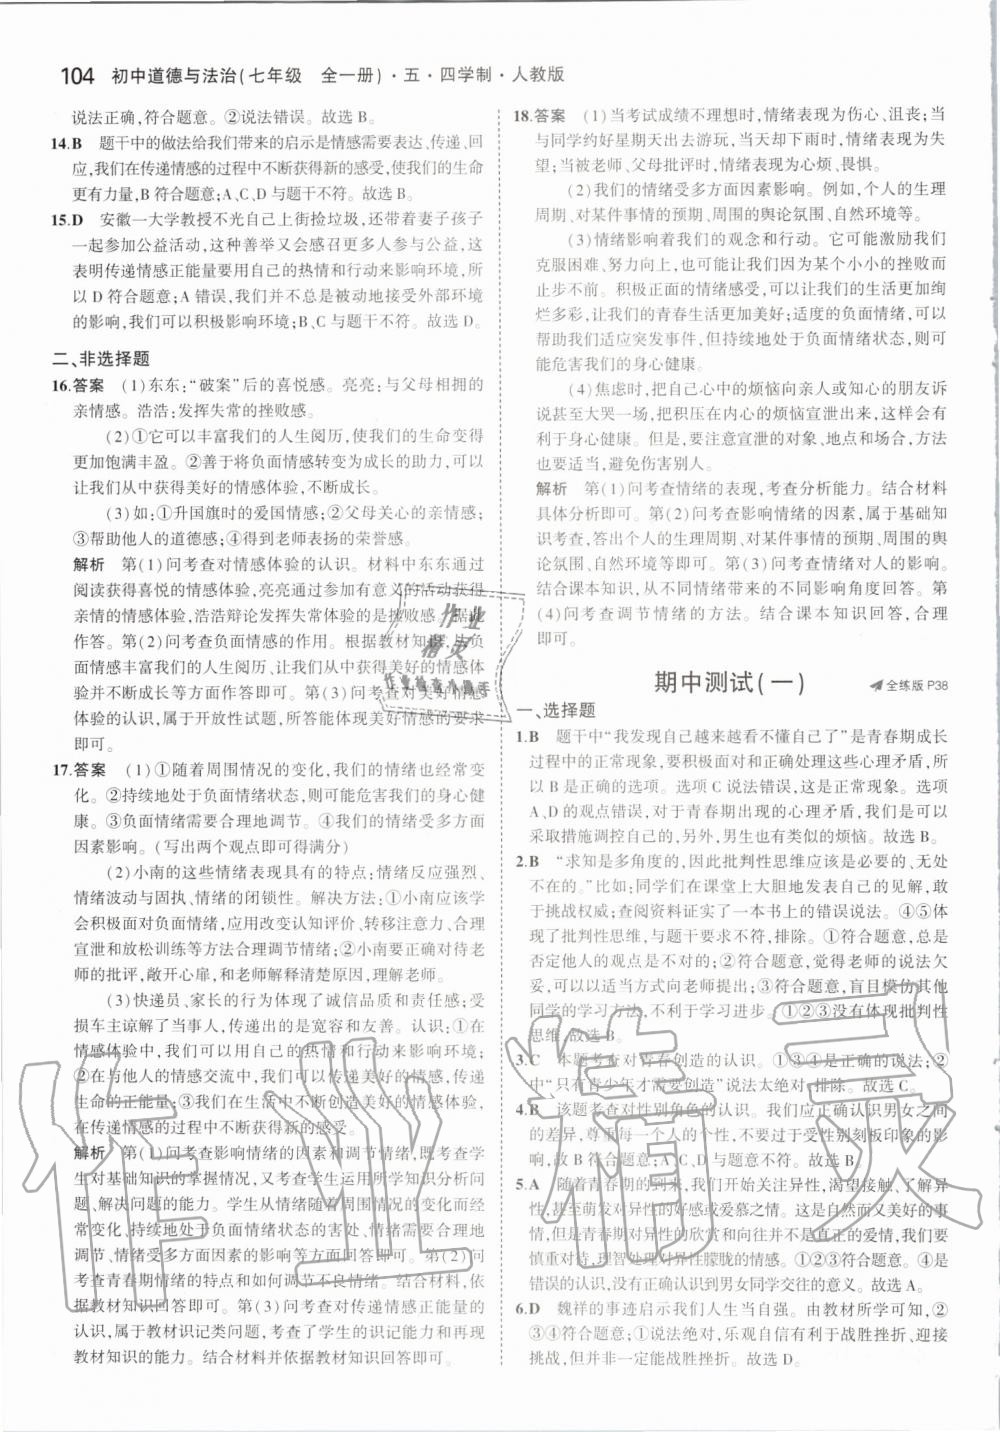 104 初中道德与法治(七年级 全一册)·五·四学制·人教版
说法正确,符合题意。②说法错误。故选B。
14.B 题干中的做法给我们带来的启示是情感需要表达、传递、回
应,我们在传递情感的过程中不断获得新的感受,使我们的生命
更有力量,B符合题意;A、C、D与题干不符。故选B。
15.D 安徽一大学教授不光自己上街捡垃圾,还带着妻子孩子
一起参加公益活动,这种善举又会感召更多人参与公益,这
表明传递情感正能量要用自己的热情和行动来影响环境,所
以D符合题意;A错误,我们并不总是被动地接受外部环境
的影响,我们可以积极影响环境;B、C与题干不符。故选D。
二、非选择题
16.答案 (1)东东:“破案”后的喜悦感。亮亮:与父母相拥的
亲情感。浩浩:发挥失常的挫败感。
(2)①它可以丰富我们的人生阅历,使我们的生命变得
更加饱满丰盈。②善于将负面情感转变为成长的助力,可以
让我们从中获得美好的情感体验,不断成长。
(3)如:①升国旗时的爱国情感;②父母关心的亲情感;
③帮助他人的道德感;④得到老师表扬的荣誉感。
解析 第(1)问考查对情感体验的认识。材料中东东通过
阅读获得喜悦的情感体验,亮亮通过有意义的活动获得
美好的情感体验,浩浩辩论发挥失常体验的是挫败感。据此
作答。第(2)问考查负面情感的作用。根据教材知识,从负
面情感丰富我们的人生阅历、让我们从中获得美好的情感体
验并不断成长两个方面回答即可。第(3)问考查对美好情感
体验的认识,属于开放性试题,所答能体现美好情感的要求
即可。
17.答案 (1)①随着周围情况的变化,我们的情绪也经常变
化。②持续地处于负面情绪状态,可能危害我们的身心健
康。③负面情绪需要合理地调节。④我们的情绪受多方面
因素影响。(写出两个观点即可得满分)
(2)小南的这些情绪表现具有的特点:情绪反应强烈、
情绪波动与固执、情绪的闭锁性。解决方法:①小南应该学
会积极面对负面情绪,应用改变认知评价、转移注意力、合理
宣泄和放松训练等方法合理调节情绪;②小南要正确对待老
师的批评,敞开心扉,和老师解释清楚原因,理解老师。
(3)快递员、家长的行为体现了诚信品质和责任感。受
损车主谅解了当事人,传递出的是宽容和友善。认识:①在
情感体验中,我们可以用自己的热情和行动来影响环境;
②在与他人的情感交流中,我们可以传递美好的情感,传递
生命的正能量;③我们在生活中不断创造美好的情感体验,
在传递情感的过程中不断获得新的感受。
解析 第(1)问考查影响情绪的因素和调节情绪,既考查学
生对基础知识的掌握情况,又考查学生运用所学知识分析问
题、解决问题的能力。学生从情绪随着周围情况的变化而经
常变化,持续地处于负面情绪状态的危害,情绪需要合理地
调节、情绪受多方面因素的影响等方面回答即可。第(2)问
考查青春期情绪的特点和如何调节不良情绪。结合材料,依
据教材知识回答即可。第(3)问考查对传递情感正能量的
认识,属于教材识记类问题,考查了学生的识记能力和再现
教材知识的能力。结合材料并依据教材知识回答即可。
18.答案 (1)当考试成绩不理想时,情绪表现为伤心、沮丧;当
与同学约好星期天出去游玩,当天却下雨时,情绪表现为失
望;当被老师、父母批评时,情绪表现为心烦、畏惧。
(2)我们的情绪受多方面因素影响。例如,个人的生理
周期、对某件事情的预期、周围的舆论氛围、自然环境等。
(3)情绪影响着我们的观念和行动。它可能激励我们
克服困难、努力向上,也可能让我们因为某个小小的挫败而
止步不前。积极正面的情绪感受,可以让我们的生活更加绚
烂多彩,让我们的青春生活更加美好;适度的负面情绪,可以
帮助我们适应突发事件,但持续地处于负面情绪状态,则可
能危害我们的身心健康。
(4)焦虑时,把自己心中的烦恼向亲人或知心的朋友诉
说甚至大哭一场,把积压在内心的烦恼宣泄出来,这样会有
利于身心健康。但是,要注意宣泄的对象、地点和场合,方法
也要适当,避免伤害别人。
解析 第(1)问考查情绪的表现,考查分析能力。结合材料
具体分析即可。第(2)问考查影响情绪的因素,属于基础知
识考查,答出个人的生理周期、对某件事情的预期、周围的舆
论氛围、自然环境等即可。第(3)问考查情绪对人的影响。
结合课本知识,从不同情绪带来的不同影响角度回答。第
(4)问考查调节情绪的方法。结合课本知识回答,合理
即可。
期中测试(一) 全练版 P38
一、选择题
1.B 题干中“我发现自己越来越看不懂自己了”是青春期成长
过程中的正常现象,要积极面对和正确处理这些心理矛盾,所
以B是正确的选项。选项C说法错误,这是正常现象。选项
A、D的观点错误,对于青春期出现的心理矛盾,我们是可以
采取措施调控自己的,另外,男生也有类似的烦恼。故选B。
2.B “求知是多角度的,因此批判性思维应该是必要的、无处
不在的。”比如:同学们在课堂上大胆地发表自己的见解,敢
于挑战权威;查阅资料证实了一本书上的错误说法。④⑤体
现了批判性思维,与题干要求不符,排除。①符合题意,总是
否定他人的观点是不对的。②符合题意,觉得老师的说法欠
妥,可以适当方式向老师提出。③符合题意,盲目模仿其他
同学的学习方法,不利于学习进步。①②③没有体现批判性
思维,故选B。
3.C 本题考查对青春创造的认识。①③④是正确的说法;②
中“只有青少年才需要创造”说法太绝对,排除。故选C。
4.B 该题考查对性别角色的认识。我们应正确认识男女之间
的差异,尊重每一个人的个性,不要过于受性别刻板印象的影
响,故B符合题意;A、C、D与题意不符。故选B。
5.A 随着青春期的到来,我们开始关注异性,渴望接触、了解异
性,甚至萌发对异性的好感或爱慕之情。这是自然而又美好的事
情,但是青春期对异性的欣赏和向往并不是真正的爱情,我们要
慎重对待,理智处理对异性朦胧的情感。①②③符合题意。④是
错误的认识,没有正确认识到男女同学交往的意义。故选A。
6.D 魏祥的事迹启示我们人生当自强。由教材所学可知,②
③④符合题意;①说法绝对,乐观自信有利于战胜挫折、迎接
挑战,但并非一定能战胜挫折。故选D。
作业精灵
作业检查小助手
作业精灵